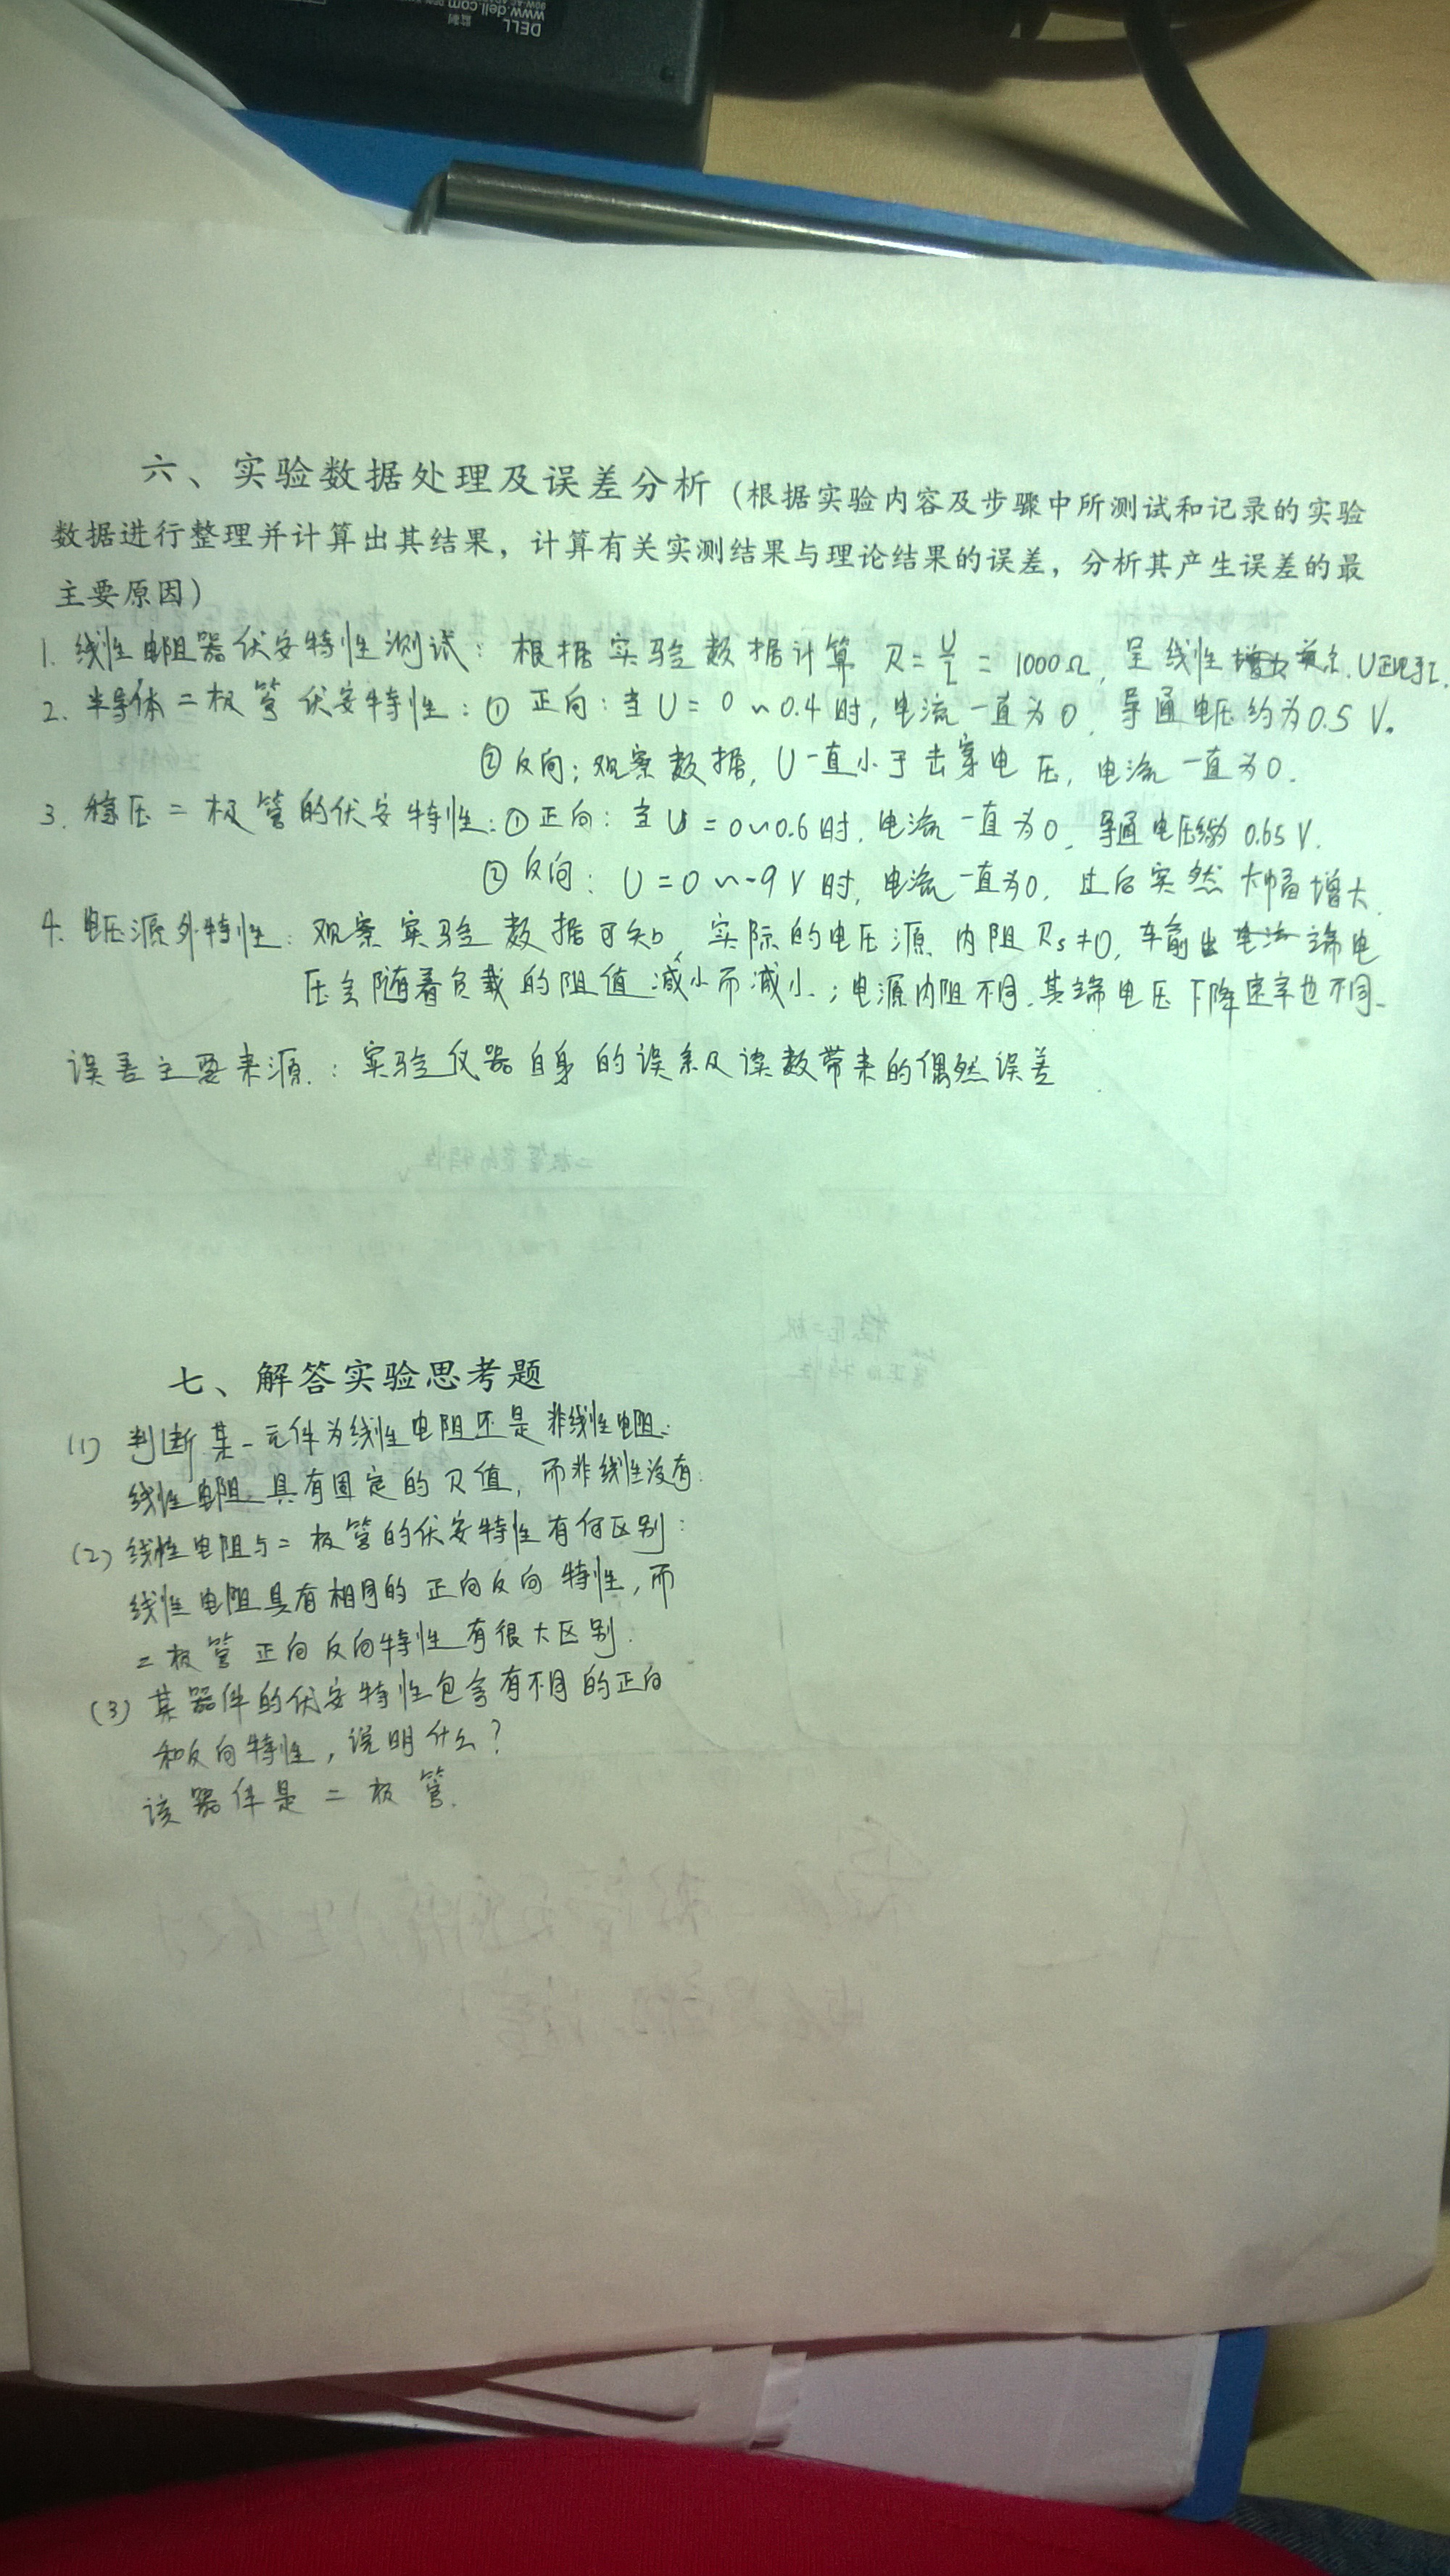 DELL
www.dell.com
六、实验数据处理及误差分析（根据实验内容及步骤中所测试和记录的实验
数据进行整理并计算出其结果，计算有关实测结果与理论结果的误差，分析其产生误差的最
主要原因）
1. 线性电阻器伏安特性测试：根据实验数据计算 R=U/I=1000Ω，呈线性关系，U正比于I.
2. 半导体二极管伏安特性：① 正向：当U=0~0.4时，电流一直为0，导通电压约为0.5V。
② 反向：观察数据，U一直小于击穿电压，电流一直为0.
3. 稳压二极管的伏安特性：① 正向：当U=0~0.6时，电流一直为0，导通电压约为0.65V.
② 反向：U=0~-9V时，电流一直为0，过后突然大幅增大.
4. 电压源外特性：观察实验数据可知，实际的电压源内阻Rs≠0，输出端电
压会随着负载的阻值减小而减小；电源内阻不同，其端电压下降速率也不同.
误差主要来源：实验仪器自身的误差及读数带来的偶然误差
七、解答实验思考题
(1) 判断某一元件为线性电阻还是非线性电阻：
线性电阻具有固定的R值，而非线性没有.
(2) 线性电阻与二极管的伏安特性有何区别：
线性电阻具有相同的正向反向特性，而
二极管正向反向特性有很大区别.
(3) 某器件的伏安特性包含有不同的正向
和反向特性，说明什么？
该器件是二极管.